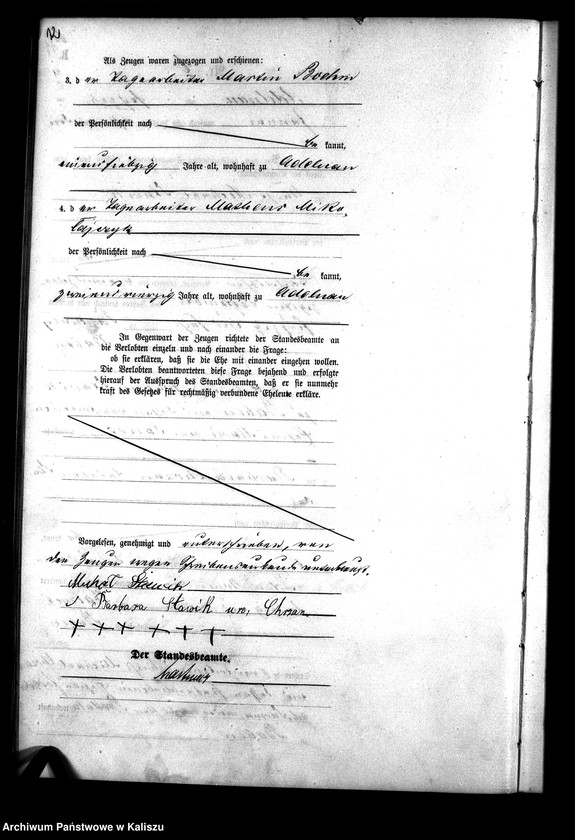 Als Zeugen waren zugezogen und erschienen:
3. d er Tagearbeiter Martin Boehm
der Persönlichkeit nach
be kannt,
einundsiebzig Jahre alt, wohnhaft zu Adelnau
4. d er Tagearbeiter Matheus Miko-
lajczyk
der Persönlichkeit nach
be kannt,
zweiundvierzig Jahre alt, wohnhaft zu Adelnau
In Gegenwart der Zeugen richtete der Standesbeamte an
die Verlobten einzeln und nach einander die Frage:
ob sie erklären, daß sie die Ehe mit einander eingehen wollen.
Die Verlobten beantworteten diese Frage bejahend und erfolgte
hierauf der Ausspruch des Standesbeamten, daß er sie nunmehr
kraft des Gesetzes für rechtmäßig verbundene Eheleute erkläre.
Vorgelesen, genehmigt und unterschrieben, von
den Zeugen wegen Schreibensunkunde unterkreuzt.
Michał Sławik
Barbara Sławik
+++ +++
Der Standesbeamte.
Archiwum Państwowe w Kaliszu